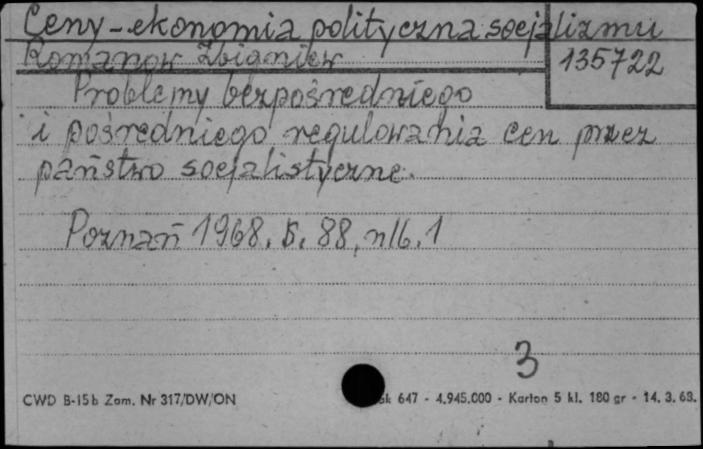 Ceny-ekonomia polityczna socjalizmu
Romanow Zbigniew
135722
Problemy bezpośredniego
i pośredniego regulowania cen przez
państwo socjalistyczne.
Poznań 1968. s. 88, nlb. 1
3
CWD B-15b Zam. Nr 317/DW/ON
sk 647 - 4.945.000 - Karton 5 kl. 180 gr - 14. 3. 63.